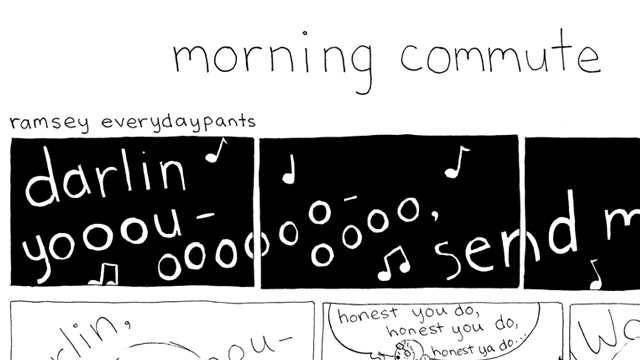 morning commute
ramsey everydaypants
darlin
yooou-
ooooooo-
oooo, send m
rlin,
oou-
honest you do,
honest you do,
honest ya do...